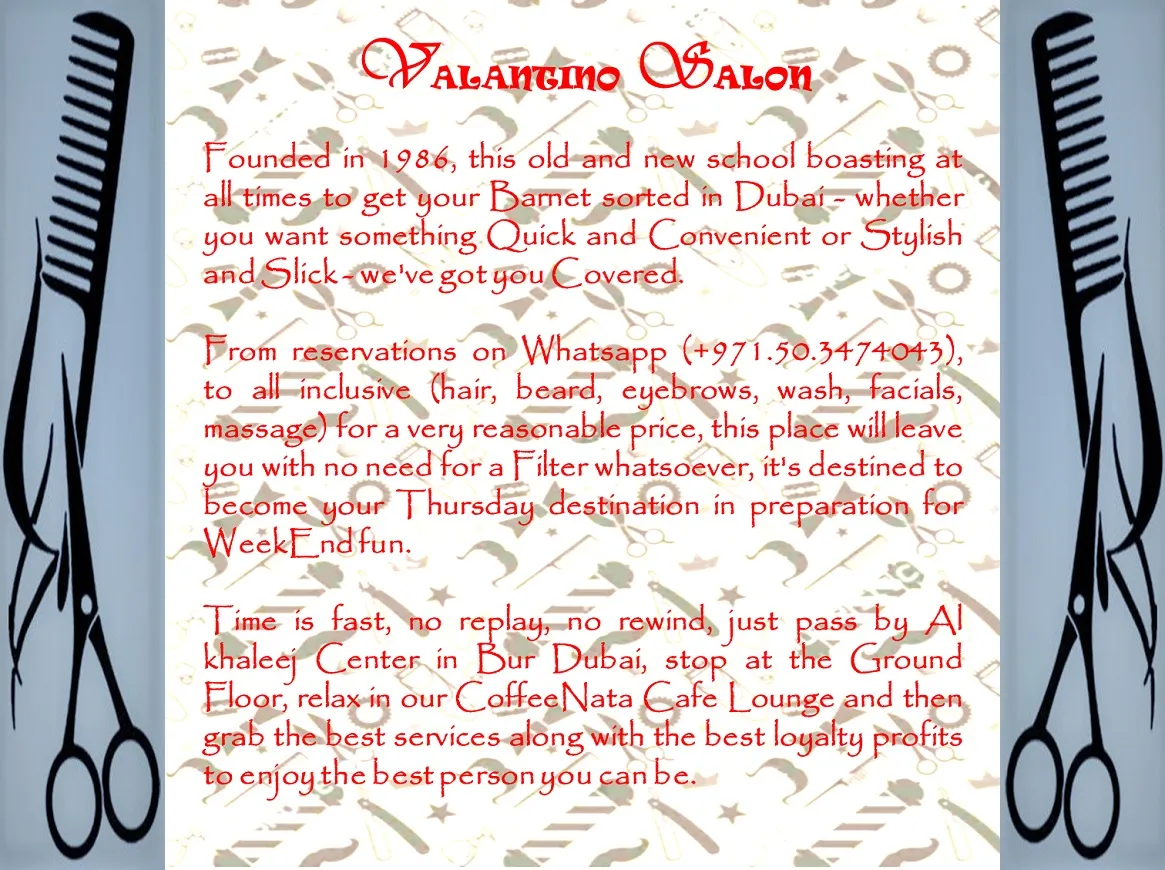 Valantino Salon
Founded in 1986, this old and new school boasting at
all times to get your Barnet sorted in Dubai - whether
you want something Quick and Convenient or Stylish
and Slick - we've got you Covered.
From reservations on Whatsapp (+971.50.3474043),
to all inclusive (hair, beard, eyebrows, wash, facials,
massage) for a very reasonable price, this place will leave
you with no need for a Filter whatsoever, it's destined to
become your Thursday destination in preparation for
WeekEnd fun.
Time is fast, no replay, no rewind, just pass by Al
khaleej Center in Bur Dubai, stop at the Ground
Floor, relax in our CoffeeNata Cafe Lounge and then
grab the best services along with the best loyalty profits
to enjoy the best person you can be.